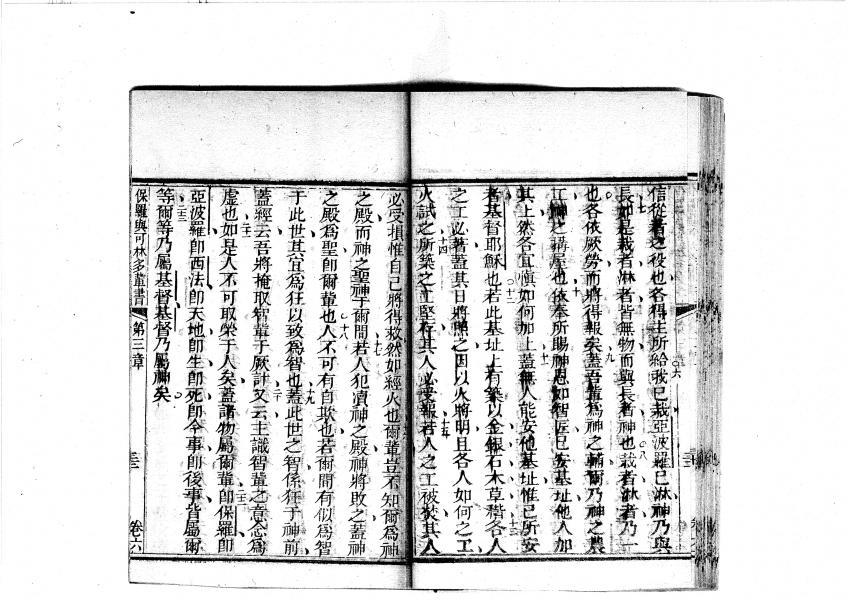 信從者之役也各得主所給我已栽亞波羅已淋神乃與
長如是栽者淋者皆無物而與長者神也栽者淋者乃一
也各依厥勞而將得報矣蓋吾輩為神之輔爾乃神之農
工神之講屋也依奉所賜神恩如智匠已安基址他人加
其上然各宜慎如何加上蓋無人能安他基址惟已所安
者基督耶穌也若此基址上有築以金銀石木草稭各人
之工必著蓋其日將照之因以火將明且各人如何之工
火試之所築之工堅存其人必受報若人之工被焚其人
必受損惟自己將得救然如經火也爾輩豈不知爾為神
之殿而神之聖神于爾間若人犯瀆神之殿神將敗之蓋神
之殿為聖即爾輩也人不可有自欺也若爾間有似為智
于此世其宜為狂以致為智也蓋此世之智係狂于神前
蓋經云吾將掩取智輩于厥計又云主識智輩之意念為
虛也如是人不可取榮于人矣蓋諸物屬爾輩即保羅即
亞波羅即西法即天地即生即死即今事即後事皆屬爾
等爾等乃屬基督基督乃屬神矣
保羅與可林多輩書 第三章 三 卷六